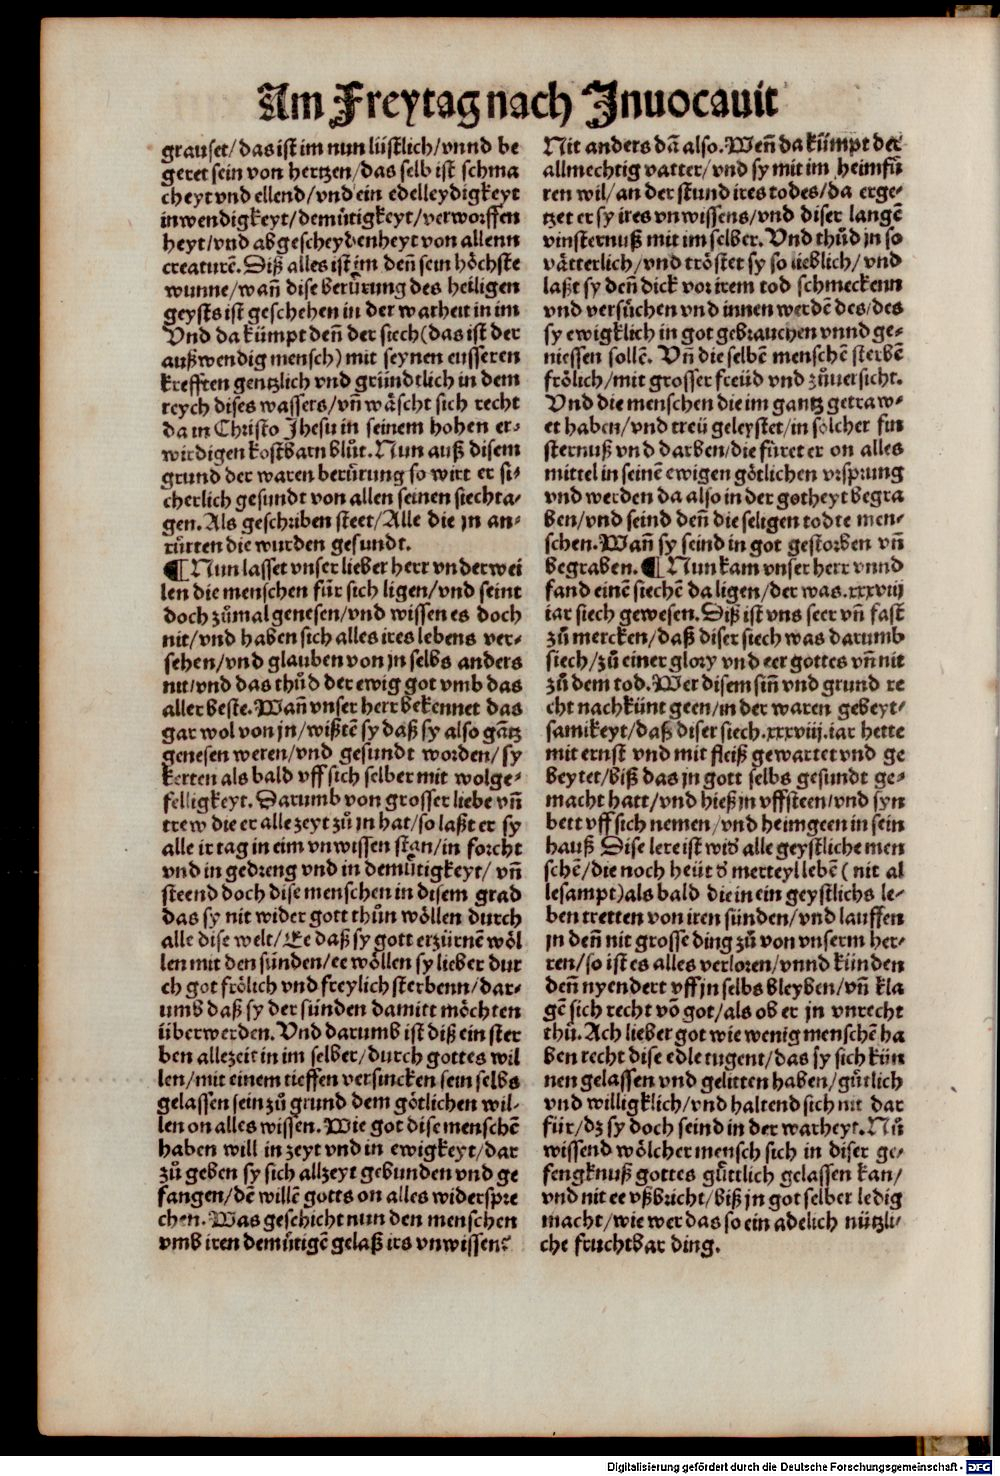 Am Freytag nach Inuocauit
grauset/das ist im nun lüstlich/vnnd be
geret sein von hertzen/das selb ist schma
cheyt vnd ellend/vnd ein edelleydigkeyt
inwendigkeyt/demuͤtigkeyt/verworffen
heyt/vnd abgescheydenheyt von allenn
creaturē. Diß alles ist im deñ sein hoͤchste
wunne/wañ dise beruͤrung des heiligen
geysts ist geschehen in der warheit in im
Vnd da kümpt deñ der siech (das ist der
außwendig mensch) mit seynen eusseren
krefften gentzlich vnd gründtlich in dem
reych dises wassers/vñ waͤscht sich recht
da in Christo Jhesu in seinem hohen er-
wirdigen kostbarn bluͦt. Nun auß disem
grund der waren beruͤrung so wirt er si-
cherlich gesundt von allen seinen siechta-
gen. Als geschriben steet/Alle die jn an-
ruͤrten die wurden gesundt.
¶ Nun lasset vnser lieber herr vnderwei
len die menschen für sich ligen/vnd seint
doch zuͦmal genesen/vnd wissen es doch
nit/vnd haben sich alles ires lebens ver-
sehen/vnd glauben von jn selbs anders
nit/vnd das thuͦd der ewig got vmb das
aller beste. Wañ vnser herr bekennet das
gar wol von jn/wißtē sy daß sy also gātz
genesen weren/vnd gesundt worden/sy
kerten als bald vff sich selber mit wolge-
felligkeyt. Darumb von grosser liebe vñ
trew die er alle zeyt zuͦ jn hat/so laßt er sy
alle ir tag in eim vnwissen stan/in forcht
vnd in gedreng vnd in demuͤtigkeyt/vñ
steend doch dise menschen in disem grad
das sy nit wider gott thuͦn woͤllen durch
alle dise welt/Ee daß sy gott erzürnē woͤl
len mit den sünden/ee woͤllen sy lieber dur
ch got froͤlich vnd freylich sterbenn/dar-
umb daß sy der sünden damitt moͤchten
überwerden. Vnd darumb ist diß ein ster
ben allezeit in im selber/durch gottes wil
len/mit einem tieffen versincken sein selbs
gelassen sein zuͦ grund dem goͤtlichen wil-
len on alles wissen. Wie got dise menschē
haben will in zeyt vnd in ewigkeyt/dar
zuͦ geben sy sich allzeyt gebunden vnd ge
fangen/dē willē gotts on alles widerspre
chen. Was geschicht nun den menschen
vmb iren demuͤtigē gelaß irs vnwissen?
Nit anders dā also. Weñ da kümpt der
allmechtig vatter/vnd sy mit im heimfuͤ
ren wil/an der stund ires todes/da erge-
tzet er sy ires vnwissens/vnd diser langē
vinsternuß mit im selber. Vnd thuͦd jn so
vaͤtterlich/vnd troͤstet sy so lieblich/vnd
laßt sy deñ dick vor irem tod schmeckenn
vnd versuͦchen vnd innen werdē des/des
sy ewigklich in got gebrauchen vnnd ge-
niessen sollē. Vñ die selbē menschē sterbē
froͤlich/mit grosser freüd vnd zuͦuersicht.
Vnd die menschen die im gantz getraw-
et haben/vnd treü geleystet/in solcher fin
sternuß vnd darben/die fuͤret er on alles
mittel in seinē ewigen goͤtlichen vrsprung
vnd werden da also in der gotheyt begra
ben/vnd seind deñ die seligen todte men-
schen. Wañ sy seind in got gestorben vñ
begraben. ¶ Nun kam vnser herr vnnd
fand einē siechē da ligen/der was .xxxviij
iar siech gewesen. Diß ist vns seer vñ fast
zuͦ mercken/daß diser siech was darumb
siech/zuͦ einer glory vnd eer gottes vñ nit
zuͦ dem tod. Wer disem siñ vnd grund re
cht nachkünt geen/in der waren gebeyt-
samikeyt/daß diser siech .xxxviij. iar hette
mit ernst vnd mit fleiß gewartet vnd ge
beytet/biß das jn gott selbs gesundt ge-
macht hatt/vnd hieß jn vffsteen/vnd syn
bett vff sich nemen/vnd heimgeen in sein
hauß Dise lere ist wid' alle geystliche men
schē/die noch heüt d' merteyl lebē (nit al
lesampt) als bald die in ein geystlichs le-
ben tretten von iren sünden/vnd lauffen
jn deñ nit grosse ding zuͦ von vnserm her-
ren/so ist es alles verloren/vnnd künden
deñ nyendert vff jn selbs bleyben/vñ kla
gē sich recht vō got/als ob er jn vnrecht
thuͤ. Ach lieber got wie wenig menschē ha
ben recht dise edle tugent/das sy sich kün
nen gelassen vnd gelitten haben/guͤtlich
vnd willigklich/vnd haltend sich nit dar
für/dz sy doch seind in der warheyt. Nuͦ
wissend woͤlcher mensch sich in diser ge-
fengknuß gottes guͤttlich gelassen kan/
vnd nit ee vßbricht/biß jn got selber ledig
macht/wie wer das so ein adelich nützli-
che fruchtbar ding.
Digitalisierung gefördert durch die Deutsche Forschungsgemeinschaft - DFG